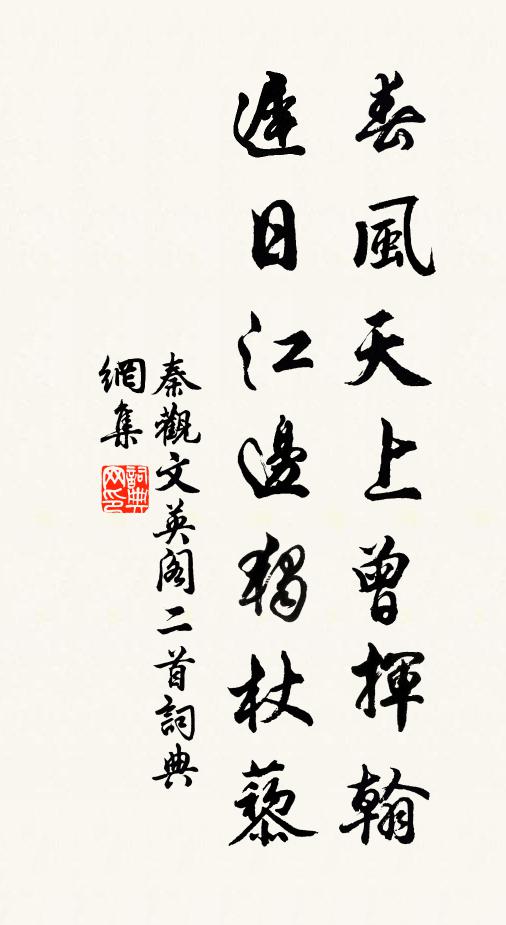 春風天上曾揮翰
遲日江邊獨杖藜
秦觀文英閣二首詞典
網集
詞典網印